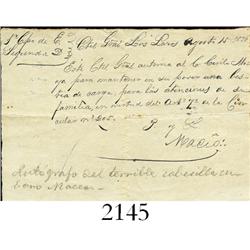 1er Cpo de E.
Segunda D.
Ctel Gral Los Lares Agosto 15 1896
Este Ctel Gral autoriza al Co Civil
ya para mantener en su poder una bes-
tia de carga, para las atenciones de su
familia, en virtud del Art 72 de la Cir-
cular no
P y L
Maceo
Autógrafo del terrible cabecilla cu-
bano Maceo
2145